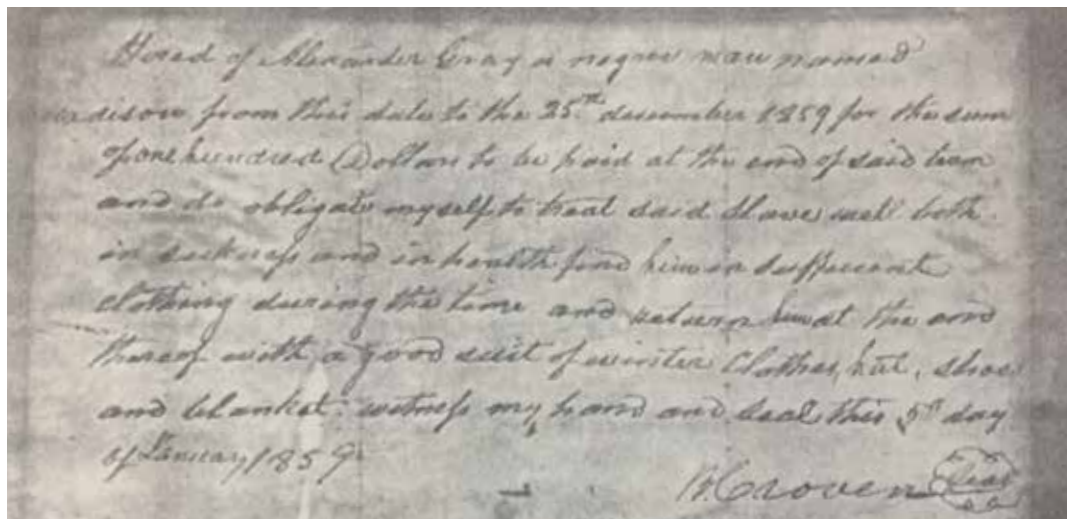 Hired of Alexander Gray a negroe man named
Madison from this date to the 25th december 1859 for the sum
of one hundred Dollars to be paid at the end of said term
and do obligate myself to treat said slave well both
in sickness and in health find him in suffucent
clothing during the time and return him at the end
thereof with a good suit of winter Clothes, hat, shoes
and blanket. witness my hand and seal this 5th day
of January 1859
B Craven Seal